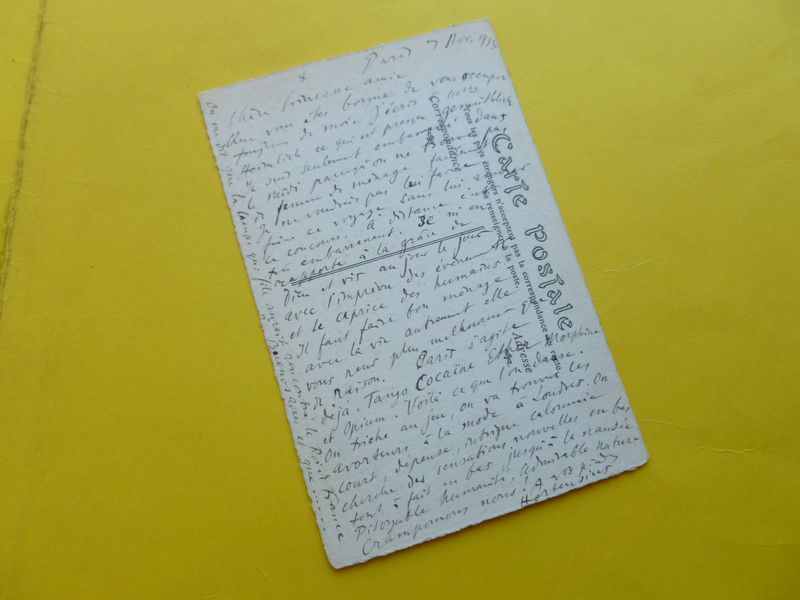 Paris 7 Nov. 1913
Chère Princesse amie
vous êtes bonne de vous occuper
toujours de moi. J'écris à
ce qui est presque
Je suis seulement embarrassé dans
midi parce qu'on ne
femme de ménage
Je ne voudrais pas lui faire
faire ce voyage sans lui assurer
ce concours. A distance c'est
très embarrassant. Je m'en
rapporte à la grâce de
Dieu et vis au jour le jour
avec l'imprévu des événements
et le caprice des humains
Il faut faire bon ménage
avec la vie autrement elle
vous rend plus malheureux que
de raison. Paris s'agite
déjà. Tango Cocaïne Ether Morphine
et Opium. Voilà ce que l'on danse.
On triche au jeu, on va trouver les
avorteurs à la mode à Londres. On
court, dépense, intrigue calomnie
cherche des sensations nouvelles en bas
tout à fait en bas jusqu'à la nausée
Pitoyable humanité, admirable nature
Cramponnons nous! A vos pieds
Hortensius
Carte Postale
Tous les pays étrangers n'acceptent pas la correspondance au recto
Se renseigner à la poste.
Correspondance
Adresse